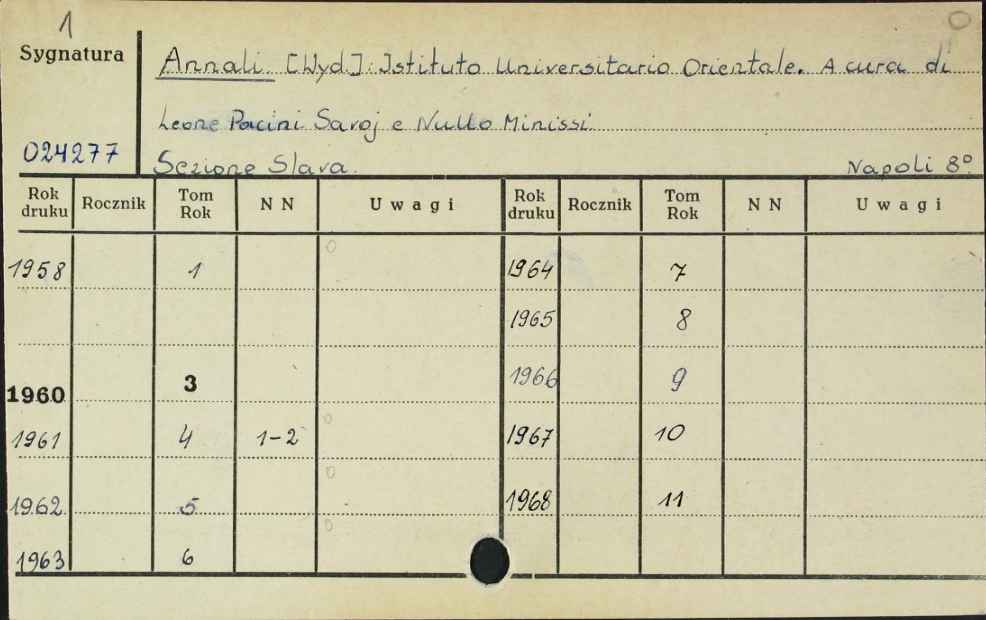 1
Sygnatura
Annali. [Wyd.]: Istituto Universitario Orientale. A cura di
Leone Pacini Savoj e Nullo Minissi.
024277
Sezione Slava.
Napoli 8°
Rok druku Rocznik Tom Rok N N Uwagi Rok druku Rocznik Tom Rok N N Uwagi
1958 1 1964 7
1965 8
1960 3 1966 9
1961 4 1-2 1967 10
1962 5 1968 11
1963 6